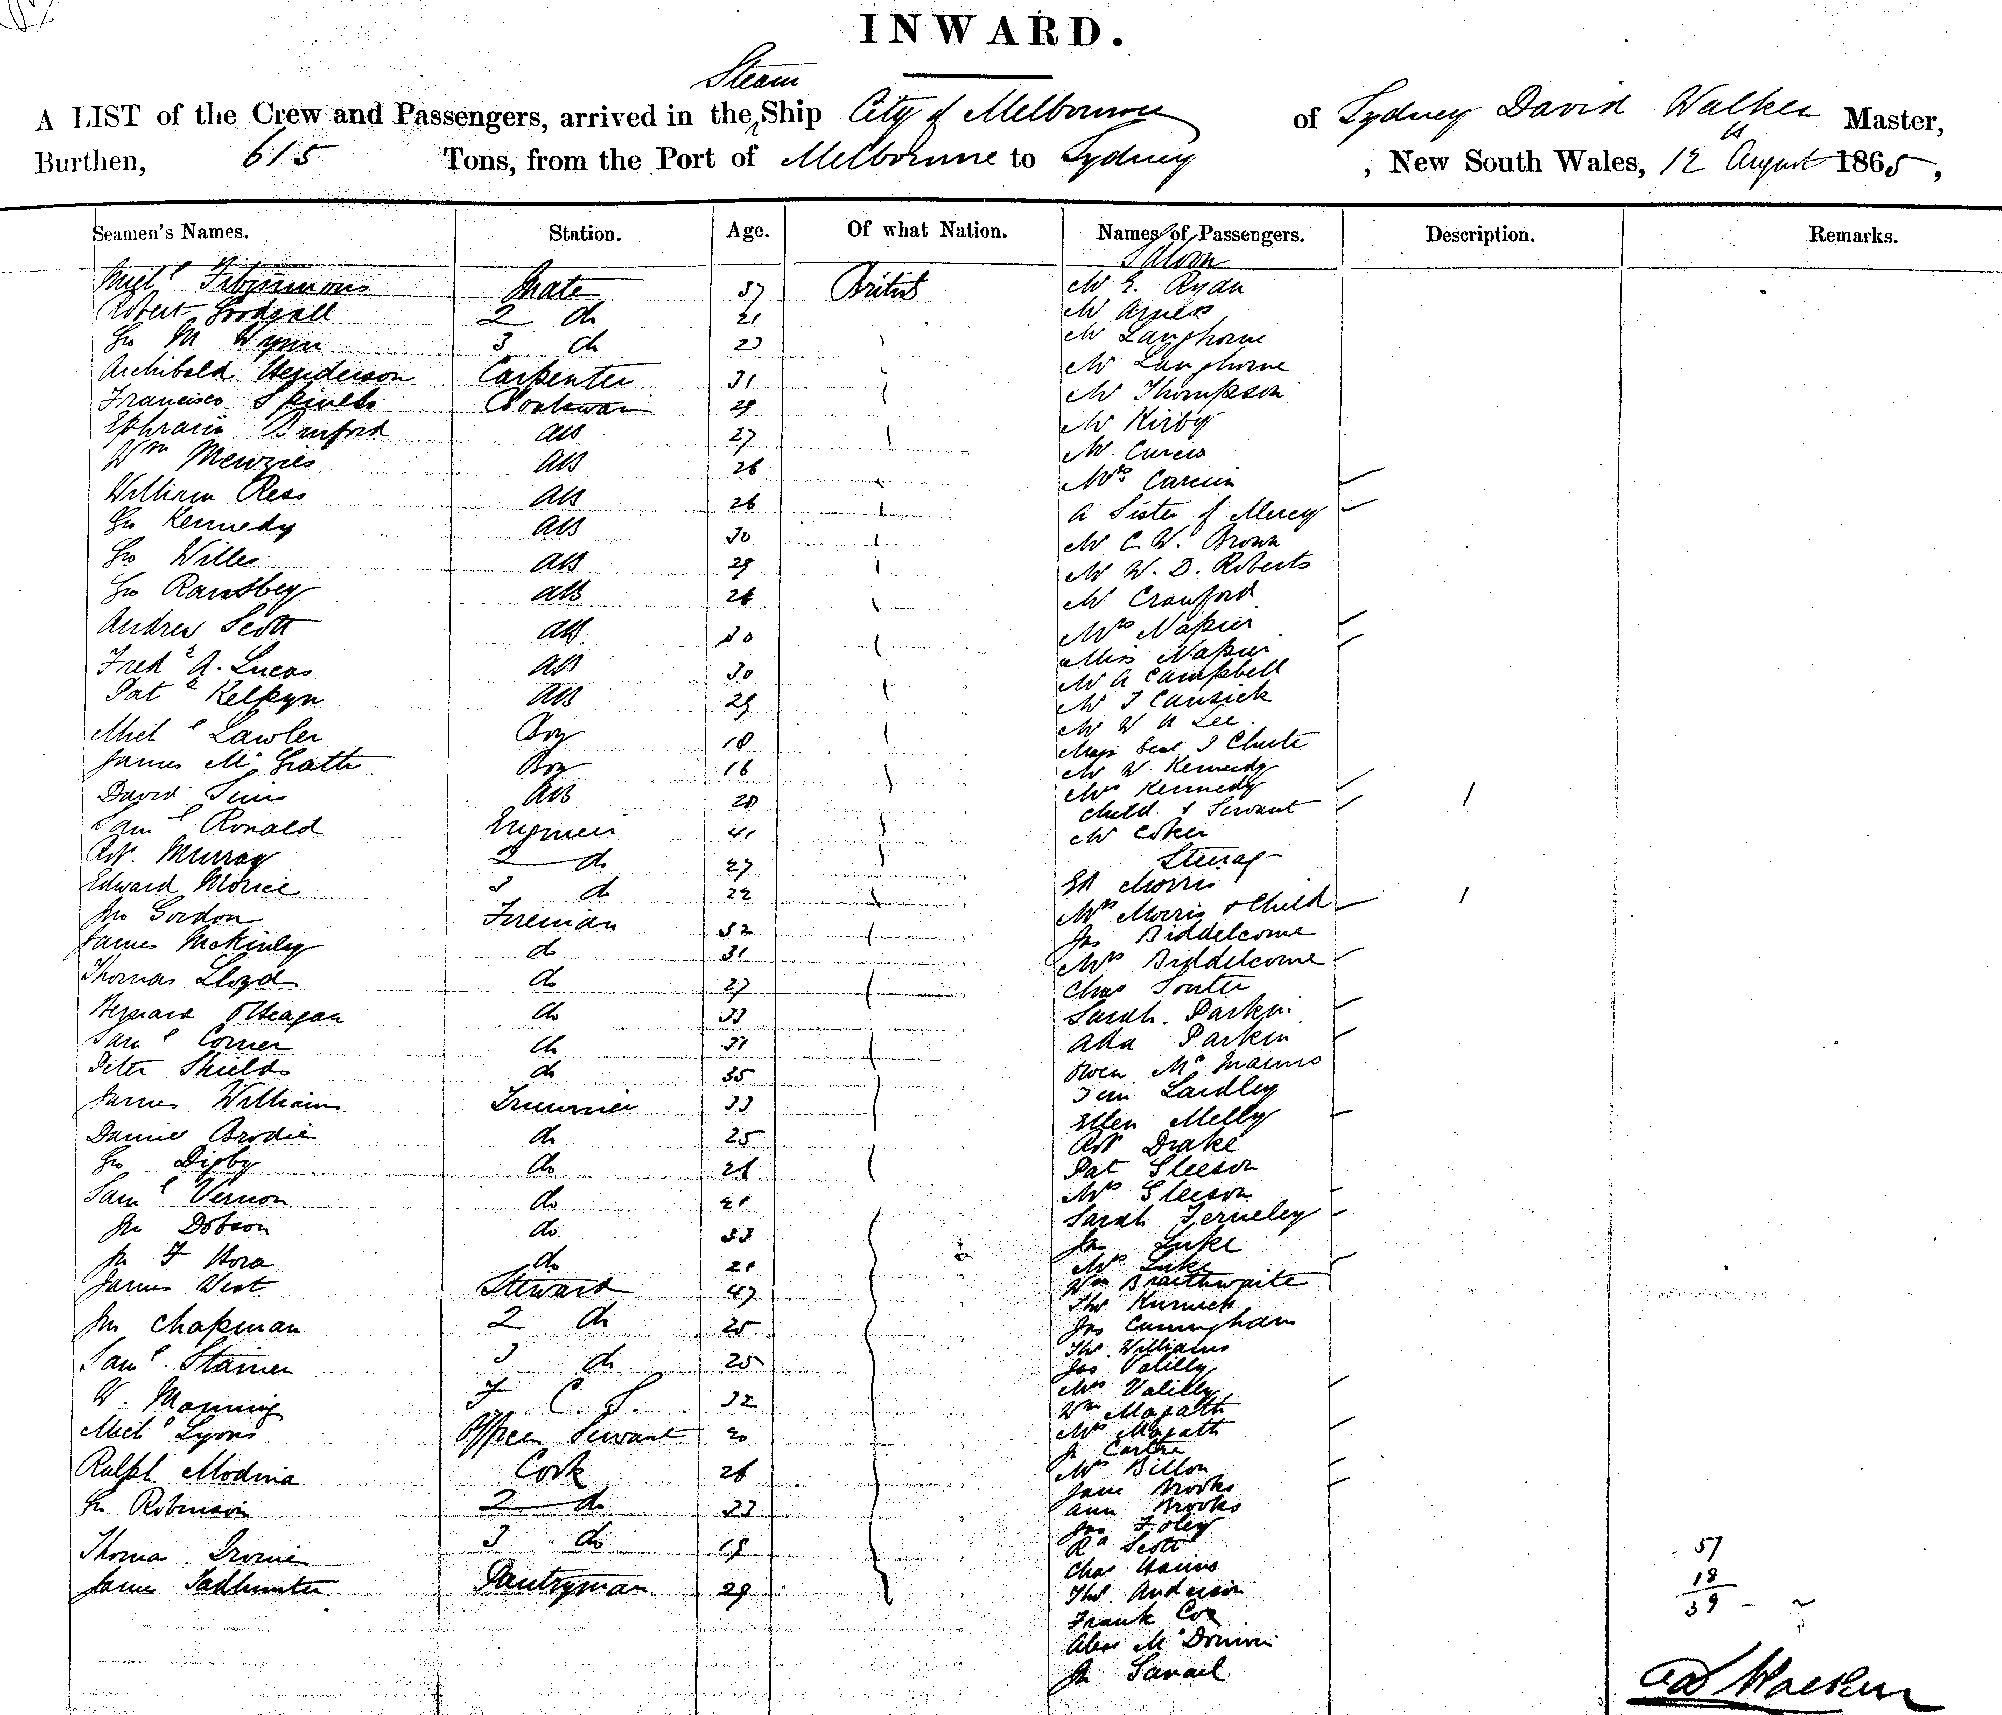 INWARD.
Steam
A LIST of the Crew and Passengers, arrived in the Ship City of Melbourne of Sydney David Walker Master,
Burthen, 615 Tons, from the Port of Melbourne to Sydney, New South Wales, 12 August 1865,
Seamen's Names. Station. Age. Of what Nation. Names of Passengers. Description. Remarks.
Saloon
Mate 37 British Mr E. Ryan
Robert 2 do 21 Mr
3 do 23 Mr Langhorne
Archibald Henderson Carpenter 31 Mr Langhorne
Francisco Boatswain 29 Mr Thompson
Ephraim Binford AB 27 Mr Kirby
Wm Menzies AB 26 Mr
William Ress AB 26 Mrs
Kennedy AB 30 A Sister of Mercy
Willis AB 29 Mr C. W. Brown
AB 26 Mr W. D. Roberts
Andrew Scott AB 30 Mr Crawford
Fredk A. Lucas AB 30 Mrs Napier
Patk AB 29 Miss Napier
Michl Lawler Boy 18 Mr A Campbell
James McGrath Boy 16 Mr J Cansick
David Sims AB 28 Mr W A Lee
Saml Ronald Engineer 41 Majr Genl T Chute
Rt. Murray 2 do 27 Mr W. Kennedy
Edward 3 do 22 Mrs Kennedy
Jno Gordon Fireman 32 Child & Servant 1
James McKinley do 31 Mr
Thomas Lloyd do 27 Steerage
do 33 Ed Morris
Saml Corner do 31 Mrs Morris & Child 1
Peter Shields do 35 Jas Biddelcome
James Williams Trimmer 33 Mrs Biddelcome
Daniel Brodie do 25 Chas
Digby do 26 Sarah Parkin
Saml Vernon do 21 Ada Parkin
Jno Dobson do 33 Owen McManus
Jno F Hora do 21 Laidley
James West Steward 47 Ellen Melly
Jno Chapman 2 do 25 Rt Drake
Saml Stainer 3 do 25 Pat Gleeson
W. Manning F. C. S. 32 Mrs Gleeson
Michl Lyons Officers Servant 20 Sarah Ferneley
Ralph Modina Cook 26 Luke
Robinson 2 do 33 Mrs Luke
Thomas 3 do 19 Wm Braithwaite
James Pantryman 29 Thos
Jas Cunningham
Thos Williams
Jas Valilly
Mrs Valilly
Wm Magath
Mrs Magath
Mrs Dillon
Jane Brooks
Ann Brooks
Jas Foley
Rd Scott
Chas
Thos Anderson
Frank Cox
Alex
Jno
57
18
39
D Walker